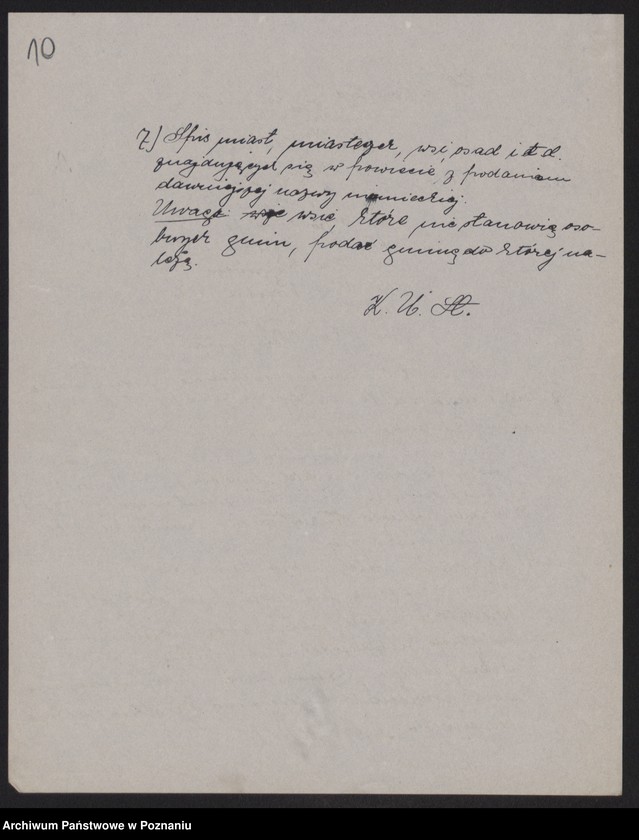 10
7) Spis miast, miasteczek, wsi, osad i t. d.
znajdujących się w powiecie z podaniem
dawniejszej nazwy niemieckiej.
Uwaga wsie, które nie stanowią oso-
bnych gmin, podać gminę do której na-
leżą.
K. U. St.
Archiwum Państwowe w Poznaniu